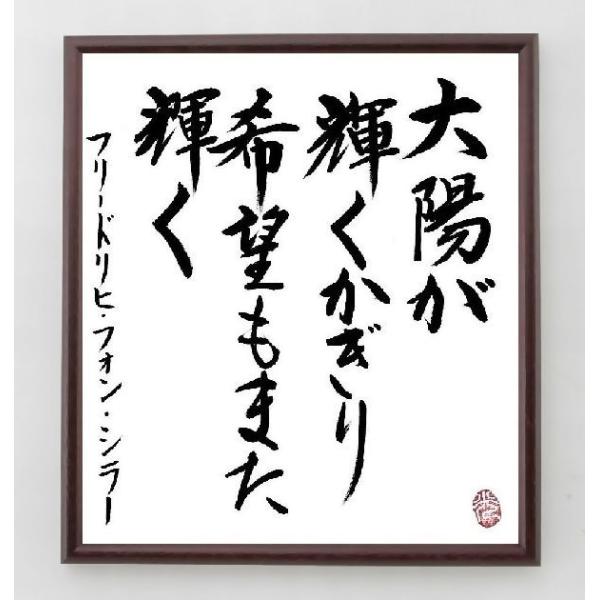 大陽が
輝くかぎり
希望もまた
輝く
フリードリヒ・フォン・シラー